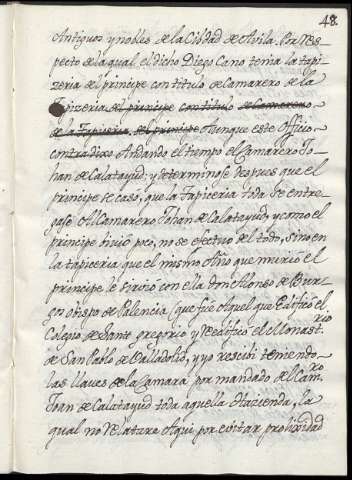 48.
Antiguos y nobles de la Ciudad de Avila. Por Res-
pecto de la qual el dicho Diego Cano tenia la tapi-
zeria del principe con titulo de Camarero de la
Tapizeria del principe con titulo de Camarero
de la Tapizeria del principe Aunque este Officio
contradixo Andando el tiempo el Camarero Jo-
han de Calatayud; y determinose despues que el
principe se caso, que la Tapiceria toda se entre-
gase Al Camarero Johan de Calatayud, y como el
principe biuio poco, no se efectuo del todo, sino en
la tapiceria que el mismo Año que murio el
principe le siruio con ella Don Alonso de Bur-
gos obispo de Palencia (que fue Aquel que Edifico el
Colegio de Sant gregorio y Reedifico el Monastrio
de San Pablo de Valladolid, y yo rescibi teniendo
las llaues de la Camara por mandado del Camro
Joan de Calatayud toda aquella Hazienda, la
qual no Relatare Aqui por euitar prolixidad